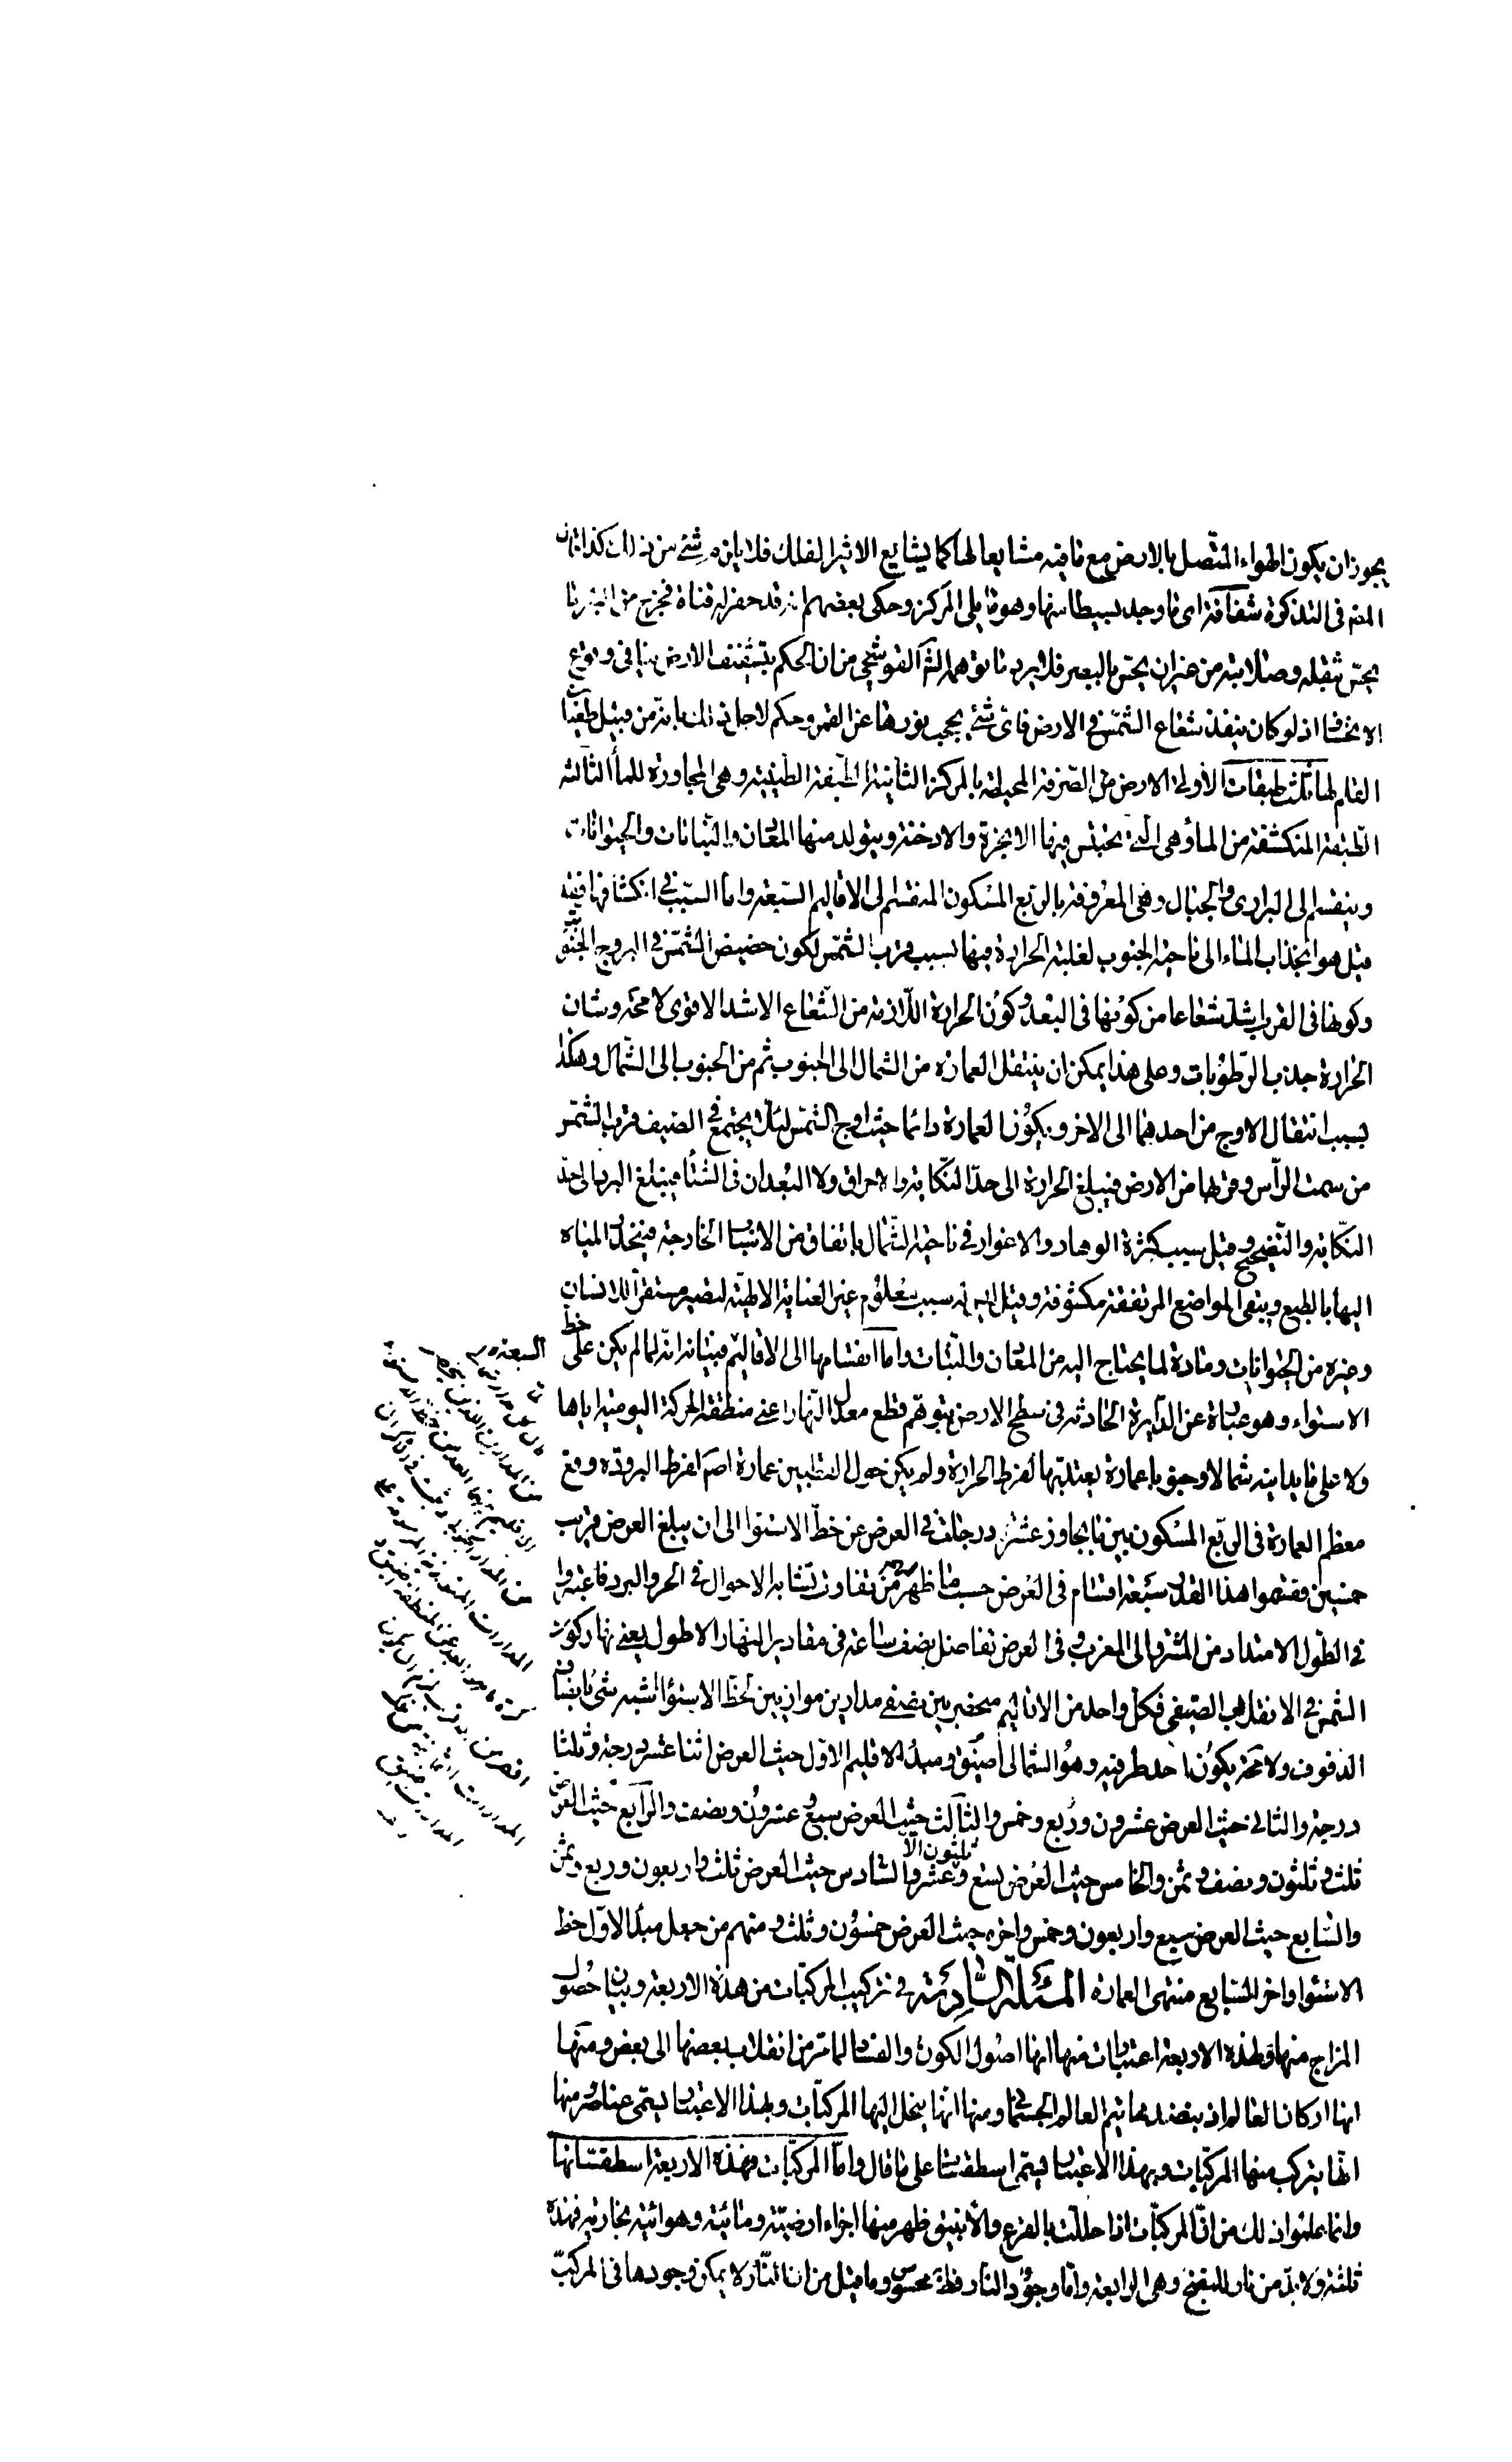 يجوز ان يكون الهواء المتصل بالارض مع ما فيه مشايعا لها كما يشايع الاثير الفلك فلا يلزم شئ من ذلك كذا قال
المصه فى التذكرة شفافة اى ما وجد بسيطا منها وهو ما يلى المركز وحكى بعضهم انه قد حفر له قناة فخرج من البئر ما
يحسّ بثقله وصلابته من غير ان يحسّ بالبصر فلا يرد ما توهمه الش القوشجى من ان الحكم بتشفيف الارض ينافى وقوع
الانخساف اذ لو كان ينفذ شعاع الشمس فى الارض فاى شئ يحجب نورها عن القمر وحكم لاجل ذلك بانه من قبيل طغيان
القلم لها ثلث طبقات الأولى الارض الصرفة المحيطة بالمركز الثانية الطبقة الطينية وهى المجاورة للماء الثالثة
الطبقة المنكشفة من الماء وهى التى تحتبس فيها الابخرة والادخنة ويتولد منها المعادن والنباتات والحيوانات
وينقسم الى البرارى والجبال وهى المعروفة بالربع المسكون المنقسم الى الاقاليم السبعة واما السبب فى انكشافها فقد
قيل هو انجذاب الماء الى ناحية الجنوب لغلبة الحرارة فيها بسبب قرب الشمس لكون حضيض الشمس فى البروج الجنوبية
وكونها فى القرب اشد شعاعا من كونها فى البعد وكون الحرارة اللازمة من الشعاع الاشد الاقوى لا محة وشان
الحرارة جذب الرطوبات وعلى هذا يمكن ان ينتقل العمارة من الشمال الى الجنوب ثم من الجنوب الى الشمال وهكذا
بسبب انتقال الاوج من احدهما الى الاخر ويكون العمارة دائما حيث اوج الشمس لئلا يجتمع فى الصيف قرب الشمس
من سمت الرأس وقربها من الارض فيبلغ الحرارة الى حد النكاية والاحراق ولا البعدان فى الشتاء فيبلغ البرد الى حد
النكاية والتفجيج وقيل سببه كثرة الوهاد والاغوار فى ناحية الشمال باتفاق من الاسباب الخارجة فينحدر المياه
اليها بالطبع ويبقى المواضع المرتفعة مكشوفة وقيل ليس له سبب معلوم غير العناية الالهية لتصير مستقرا للانسان
وغيره من الحيوانات ومادة لما يحتاج اليه من المعادن والنبات واما انقسامها الى الاقاليم فبيانه انه لما لم يكن على خط
الاستواء وهو عبارة عن الدايرة الحادثة فى سطح الارض بتوهم قطع معدل النهار اعنى منطقة الحركة اليومية اياها
ولا على ما يدانيه شمالا وجنوبا عمارة يعتد بها لفرط الحرارة ولم يكن حول القطبين عمارة اصم لفرط البرودة وقع
معظم العمارة فى الربع المسكون بين ما يجاوز عشر درجات فى العرض عن خط الاستوا الى ان يبلغ العرض قريب
خمسين وقسموا هذا القدر سبعة اقسام فى العرض حسب ما ظهر لهم من تفاوت تشابه الاحوال فى الحر والبرد فاعتبروا
فى الطول الامتداد من المشرق الى المغرب وفى العرض تفاضل نصف ساعة فى مقادير النهار الاطول يعنى نهار كون
الشمس فى الانقلاب الصيفى فكل واحد من الاقاليم منحصر بين نصفى مدارين موازيين لخط الاستواء اشبه شئ بانصاف
الدفوف ولا محة يكون احد طرفيه وهو الشمالى اضيق ومبدء الاقليم الاول حيث العرض اثنا عشر درجة وثلثا
درجة والثانى حيث العرض عشرون وربع وخمس والثالث حيث العرض سبع وعشرون ونصف والرابع حيث العرض
ثلث وثلثون ونصف وثمن والخامس حيث العرض تسع وثلثون الا عشر والسادس حيث العرض ثلث واربعون وربع وثمن
والسابع حيث العرض سبع واربعون وخمس واخره حيث العرض خمسون وثلث ومنهم من جعل مبدأ الاول خط
الاستواء واخر السابع منتهى العمارة المسئلة السادسة فى تركيب المركبات من هذه الاربعة وبيان حصول
المزاج منها ولهذه الاربعة اعتبارات منها انها اصول الكون والفساد لما مر من انقلاب بعضها الى بعض ومنها
انها اركان العالم اذ بنضدها يتم العالم الجسمانى ومنها انها ينحل اليها المركبات وبهذا الاعتبار يسمى عناصر ومنها
انها يتركب منها المركبات وبهذا الاعتبار يسمى اسطقسات على ما قال واما المركبات فهذه الاربعة اسطقساتها
وانما علموا ذلك من ان المركبات اذا حللت بالقرع والانبيق ظهر منها اجزاء ارضية ومائية وهوائية بخارية فهذه
ثلثة ولا بد من نار للنضج وهى الرابعة واما وجود النار فظ محسوس وما قيل من ان النار لا يمكن وجودها فى المركب